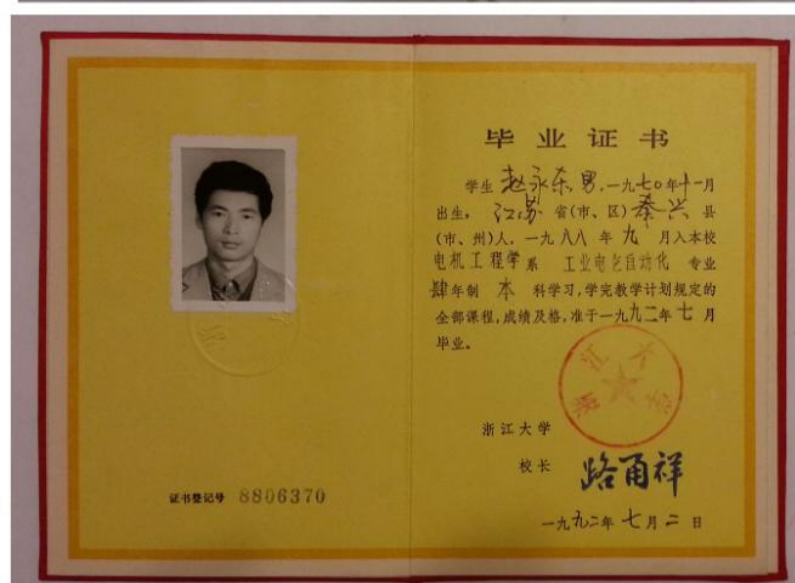 毕业证书
学生 赵永东, 男, 一九七〇年十一月
出生, 江苏 省(市、区) 泰兴 县
(市、州)人, 一九八八 年 九 月入本校
电机工程学 系 工业电气自动化 专业
肆年制 本 科学习, 学完教学计划规定的
全部课程, 成绩及格, 准于一九九二年 七 月
毕业。
浙江大学
浙江大学
校长 路甬祥
证书登记号 8806370
一九九二年 七 月 二 日